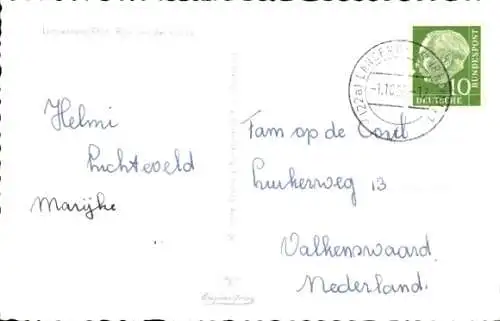 Helmi
Luchteveld
Marijke
Fam op de Coul
Luikerweg 13
Valkenswaard.
Nederland.
10
DEUTSCHE
BUNDESPOST